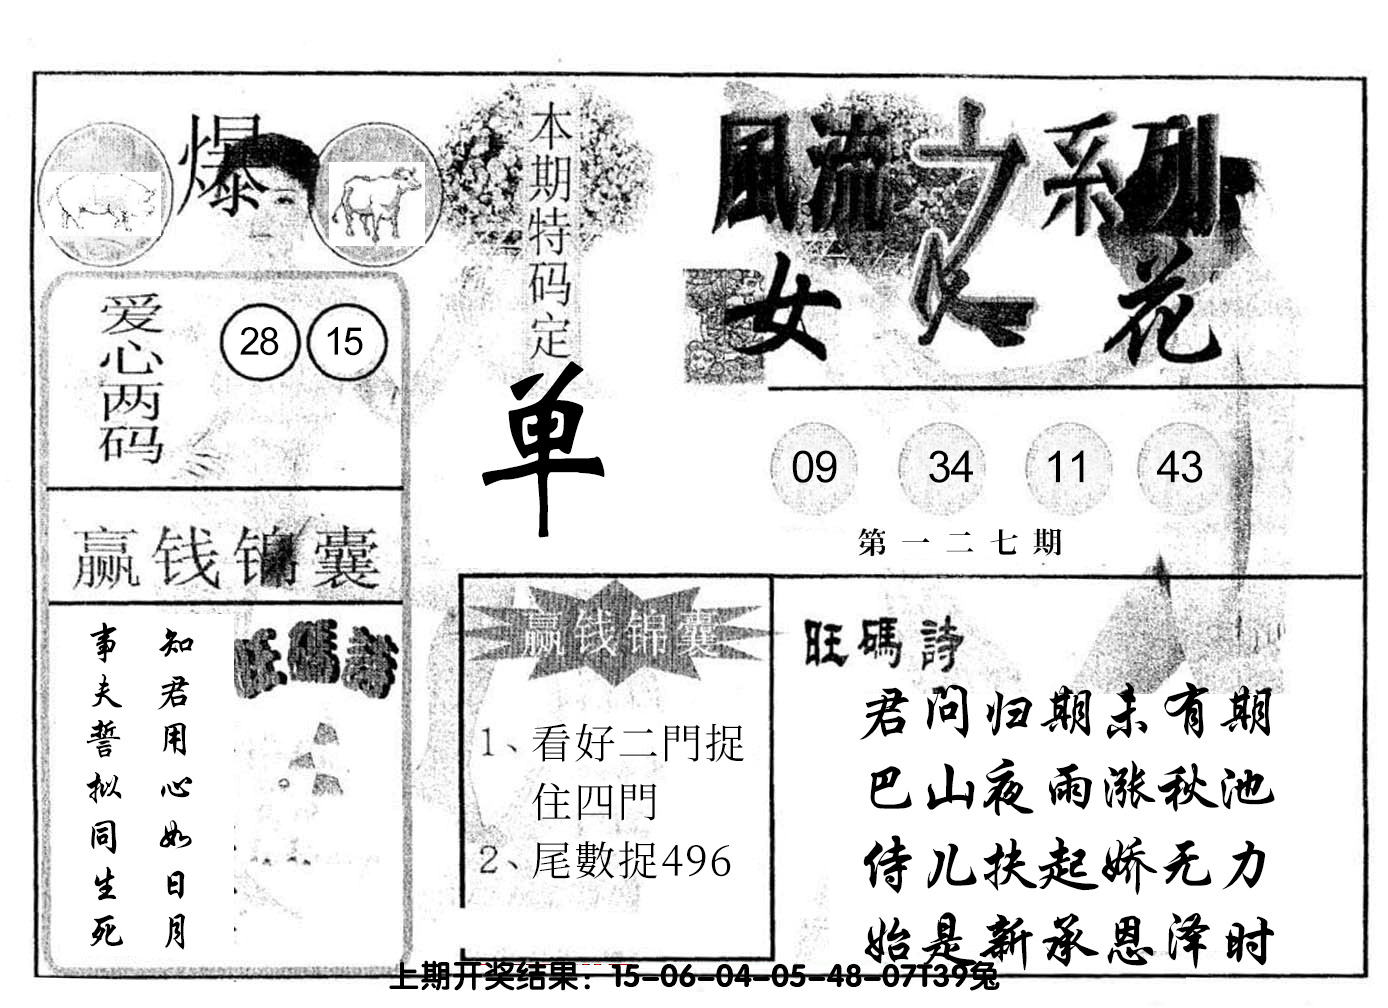 爆
本期特码定
单
風流之系列
女人花
爱心两码
28 15
09 34 11 43
第一二七期
赢钱锦囊
知君用心如日月
事夫誓拟同生死
旺碼詩
赢钱锦囊
1、看好二門捉
住四門
2、尾數捉496
旺碼詩
君问归期未有期
巴山夜雨涨秋池
侍儿扶起娇无力
始是新承恩泽时
上期开奖结果：15-06-04-05-48-07T39兔